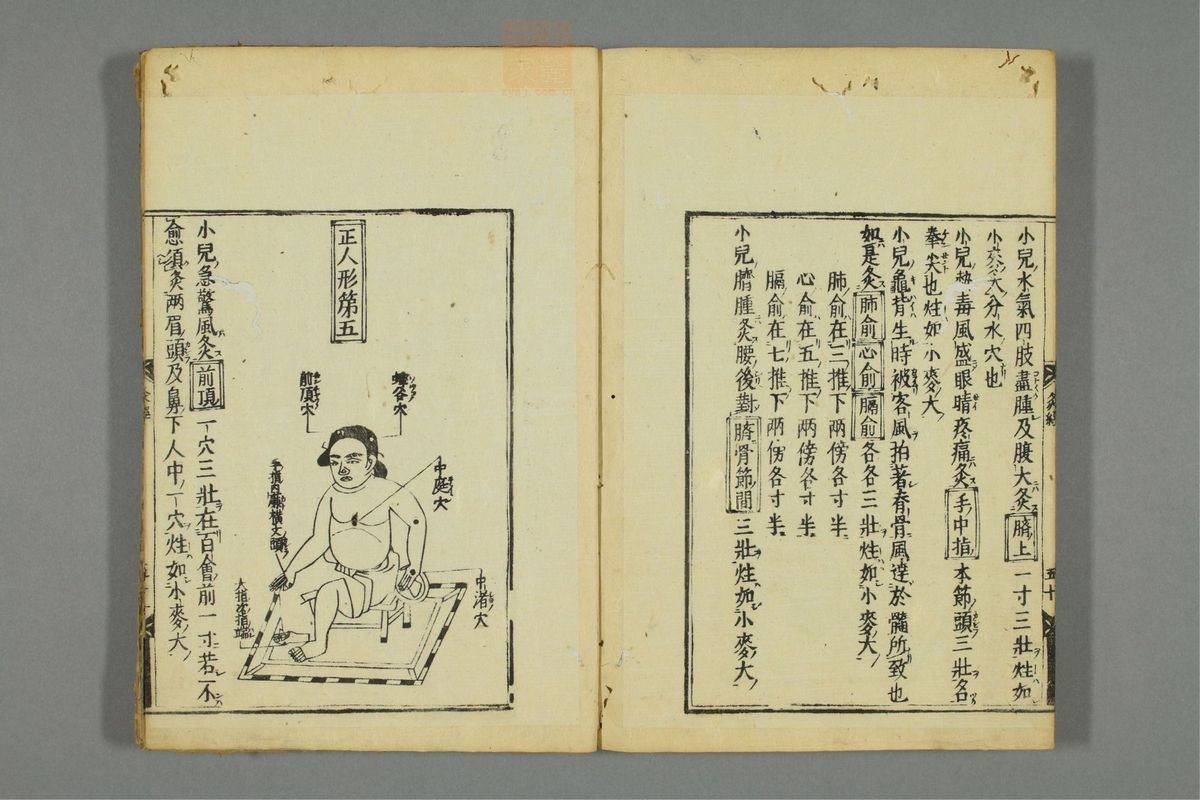 小兒水氣四肢盡腫及腹大灸臍上一寸三壯炷如
小麥大分水穴也
小兒熱毒風盛眼睛疼痛灸手中指本節頭三壯名
拳尖也炷如小麥大
小兒龜背生時被客風拍著脊骨風達於髓所致也
如是灸肺俞心俞膈俞各各三壯炷如小麥大
肺俞在三推下兩傍各寸半
心俞在五推下兩傍各寸半
膈俞在七推下兩傍各寸半
小兒臍腫灸腰後對臍骨節間三壯炷如小麥大
灸經
五十
正人形第五
前頂穴
中庭穴
中渚穴
小兒急驚風灸前頂一穴三壯在百會前一寸若不
愈須灸兩眉頭及鼻下人中一穴炷如小麥大